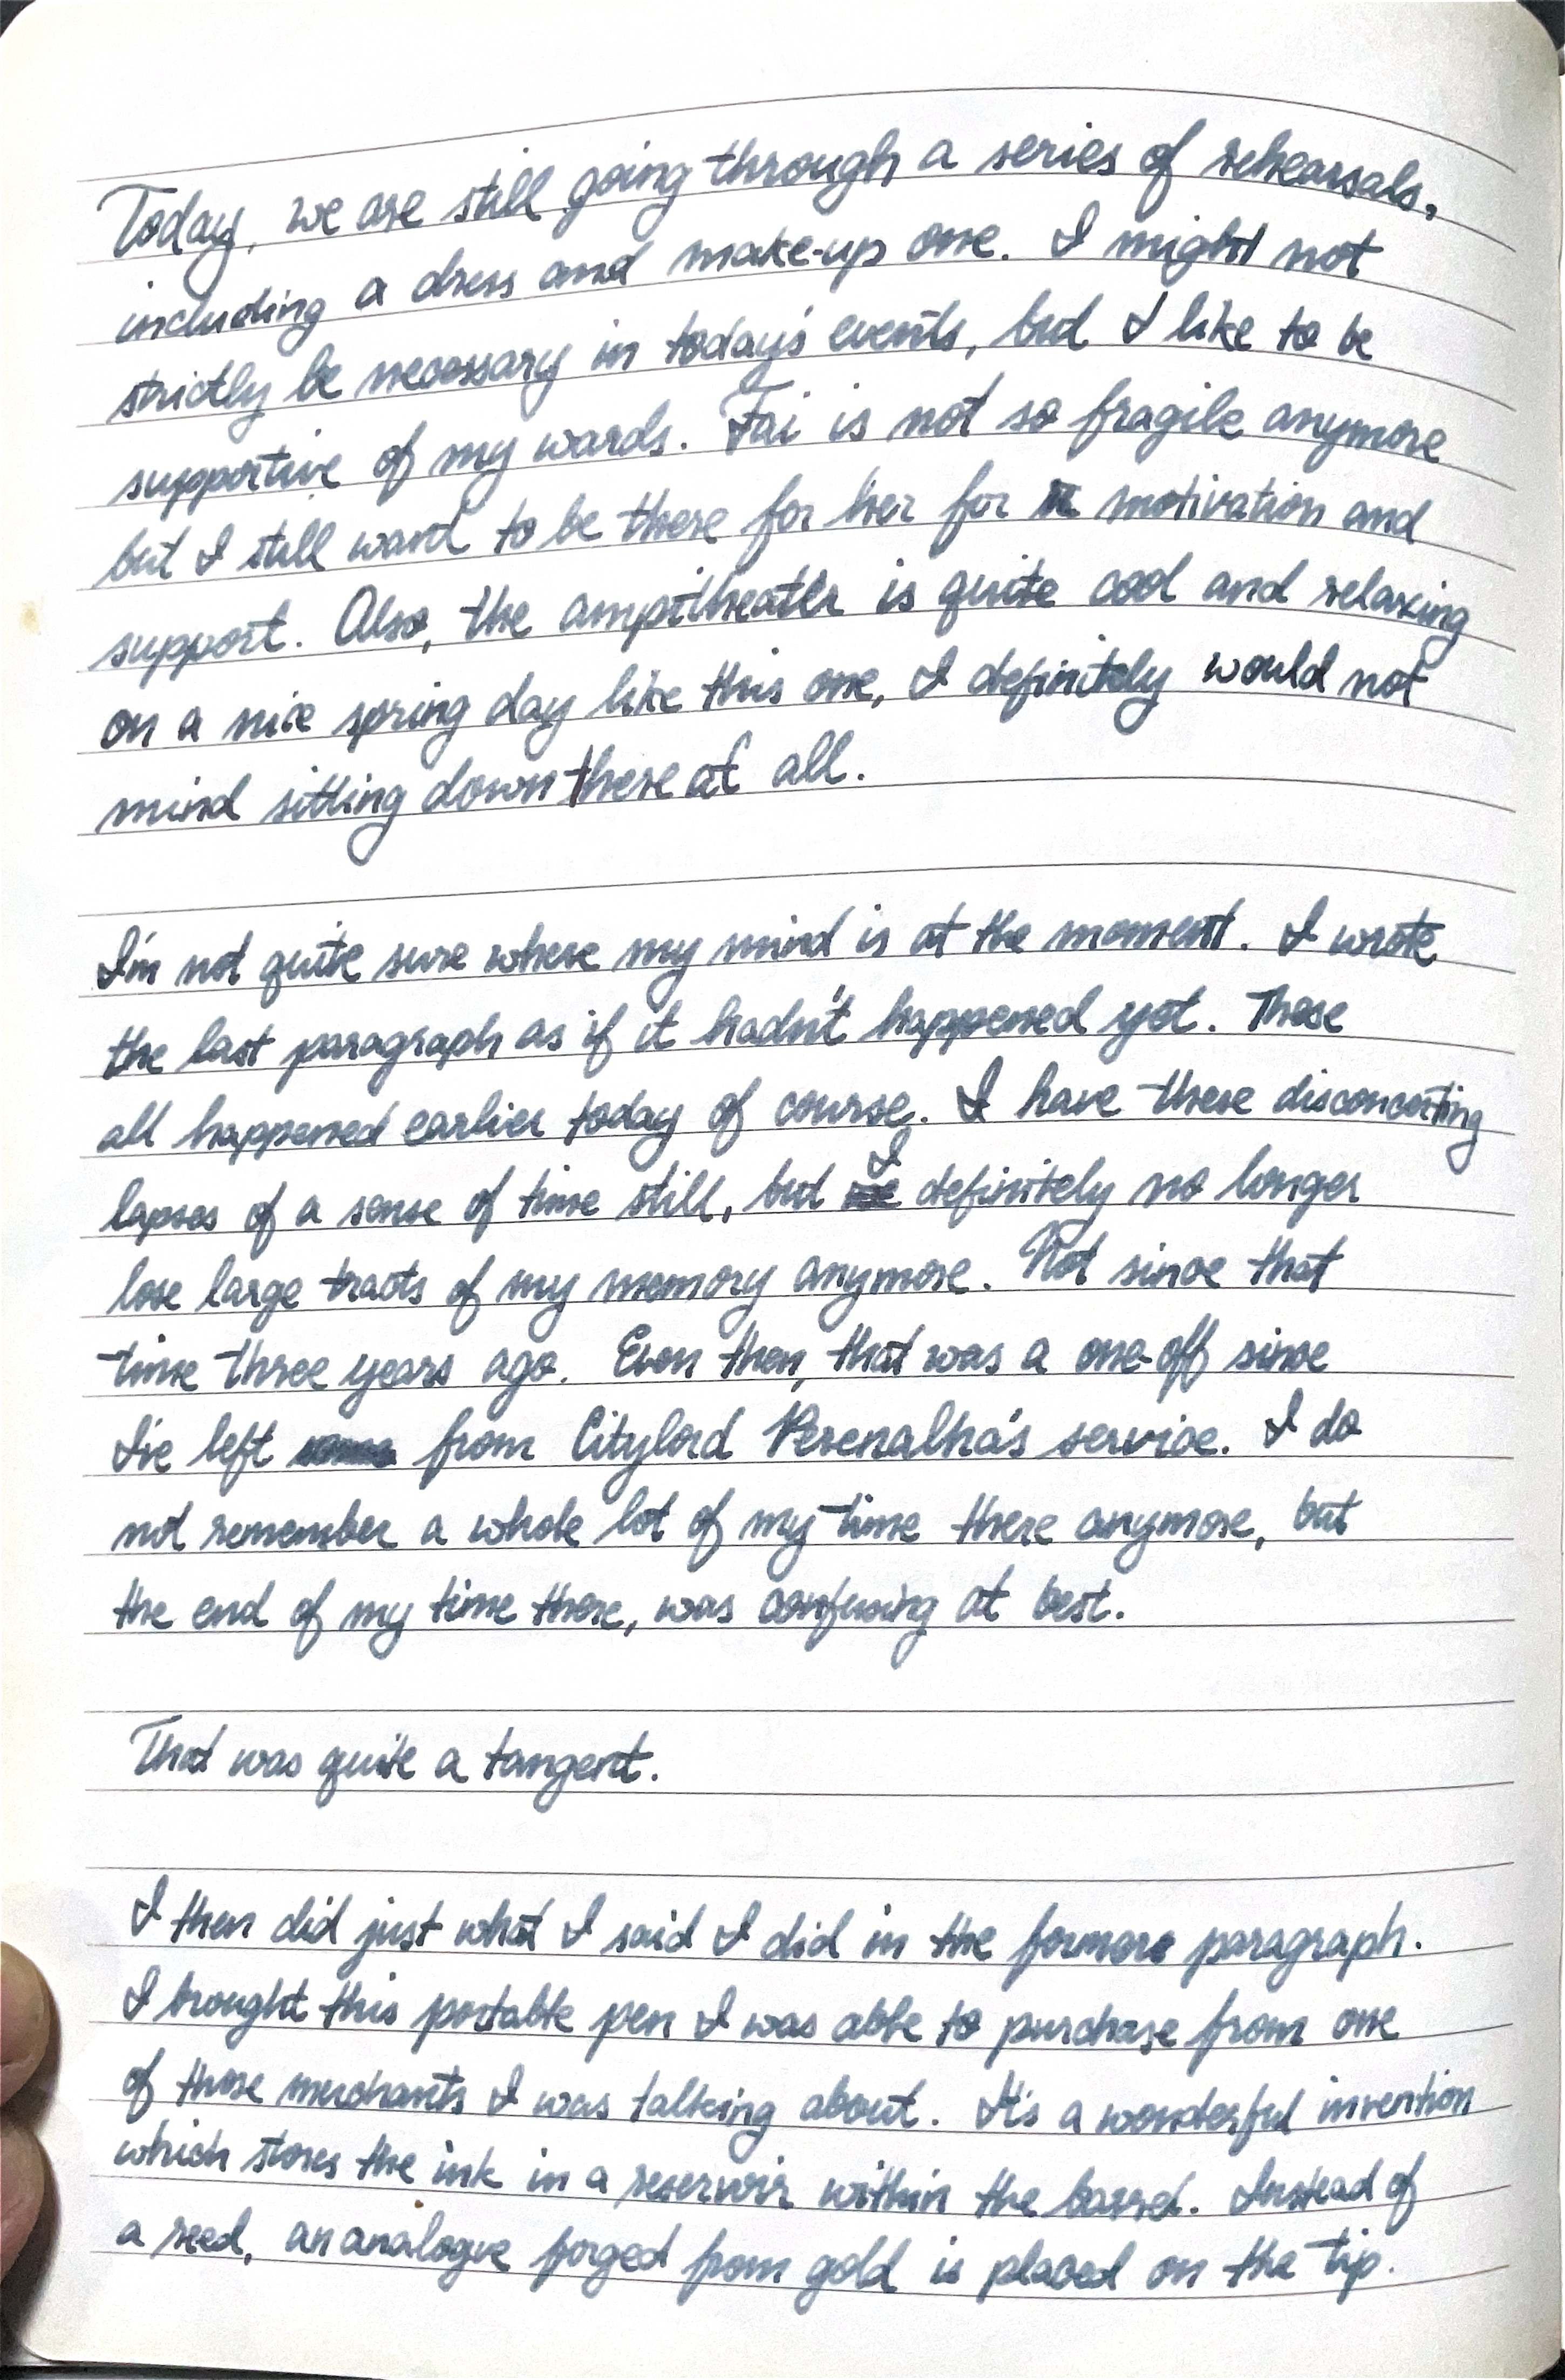 Today, we are still going through a series of rehearsals,
including a dress and make-up one. I might not
strictly be necessary in today's events, but I like to be
supportive of my wards. Fai is not so fragile anymore
but I still want to be there for her for motivation and
support. Also, the ampitheater is quite cool and relaxing
on a nice spring day like this one, I definitely would not
mind sitting down there at all.
I'm not quite sure where my mind is at the moment. I wrote
the last paragraph as if it hadn't happened yet. These
all happened earlier today of course. I have these disconcerting
lapses of a sense of time still, but I definitely no longer
lose large tracts of my memory anymore. Not since that
time three years ago. Even then, that was a one-off since
I've left from Citylord Perenalha's service. I do
not remember a whole lot of my time there anymore, but
the end of my time there, was confusing at best.
That was quite a tangent.
I then did just what I said I did in the former paragraph.
I brought this portable pen I was able to purchase from one
of those merchants I was talking about. It's a wonderful invention
which stores the ink in a reservoir within the barrel. Instead of
a reed, an analogue forged from gold is placed on the tip.